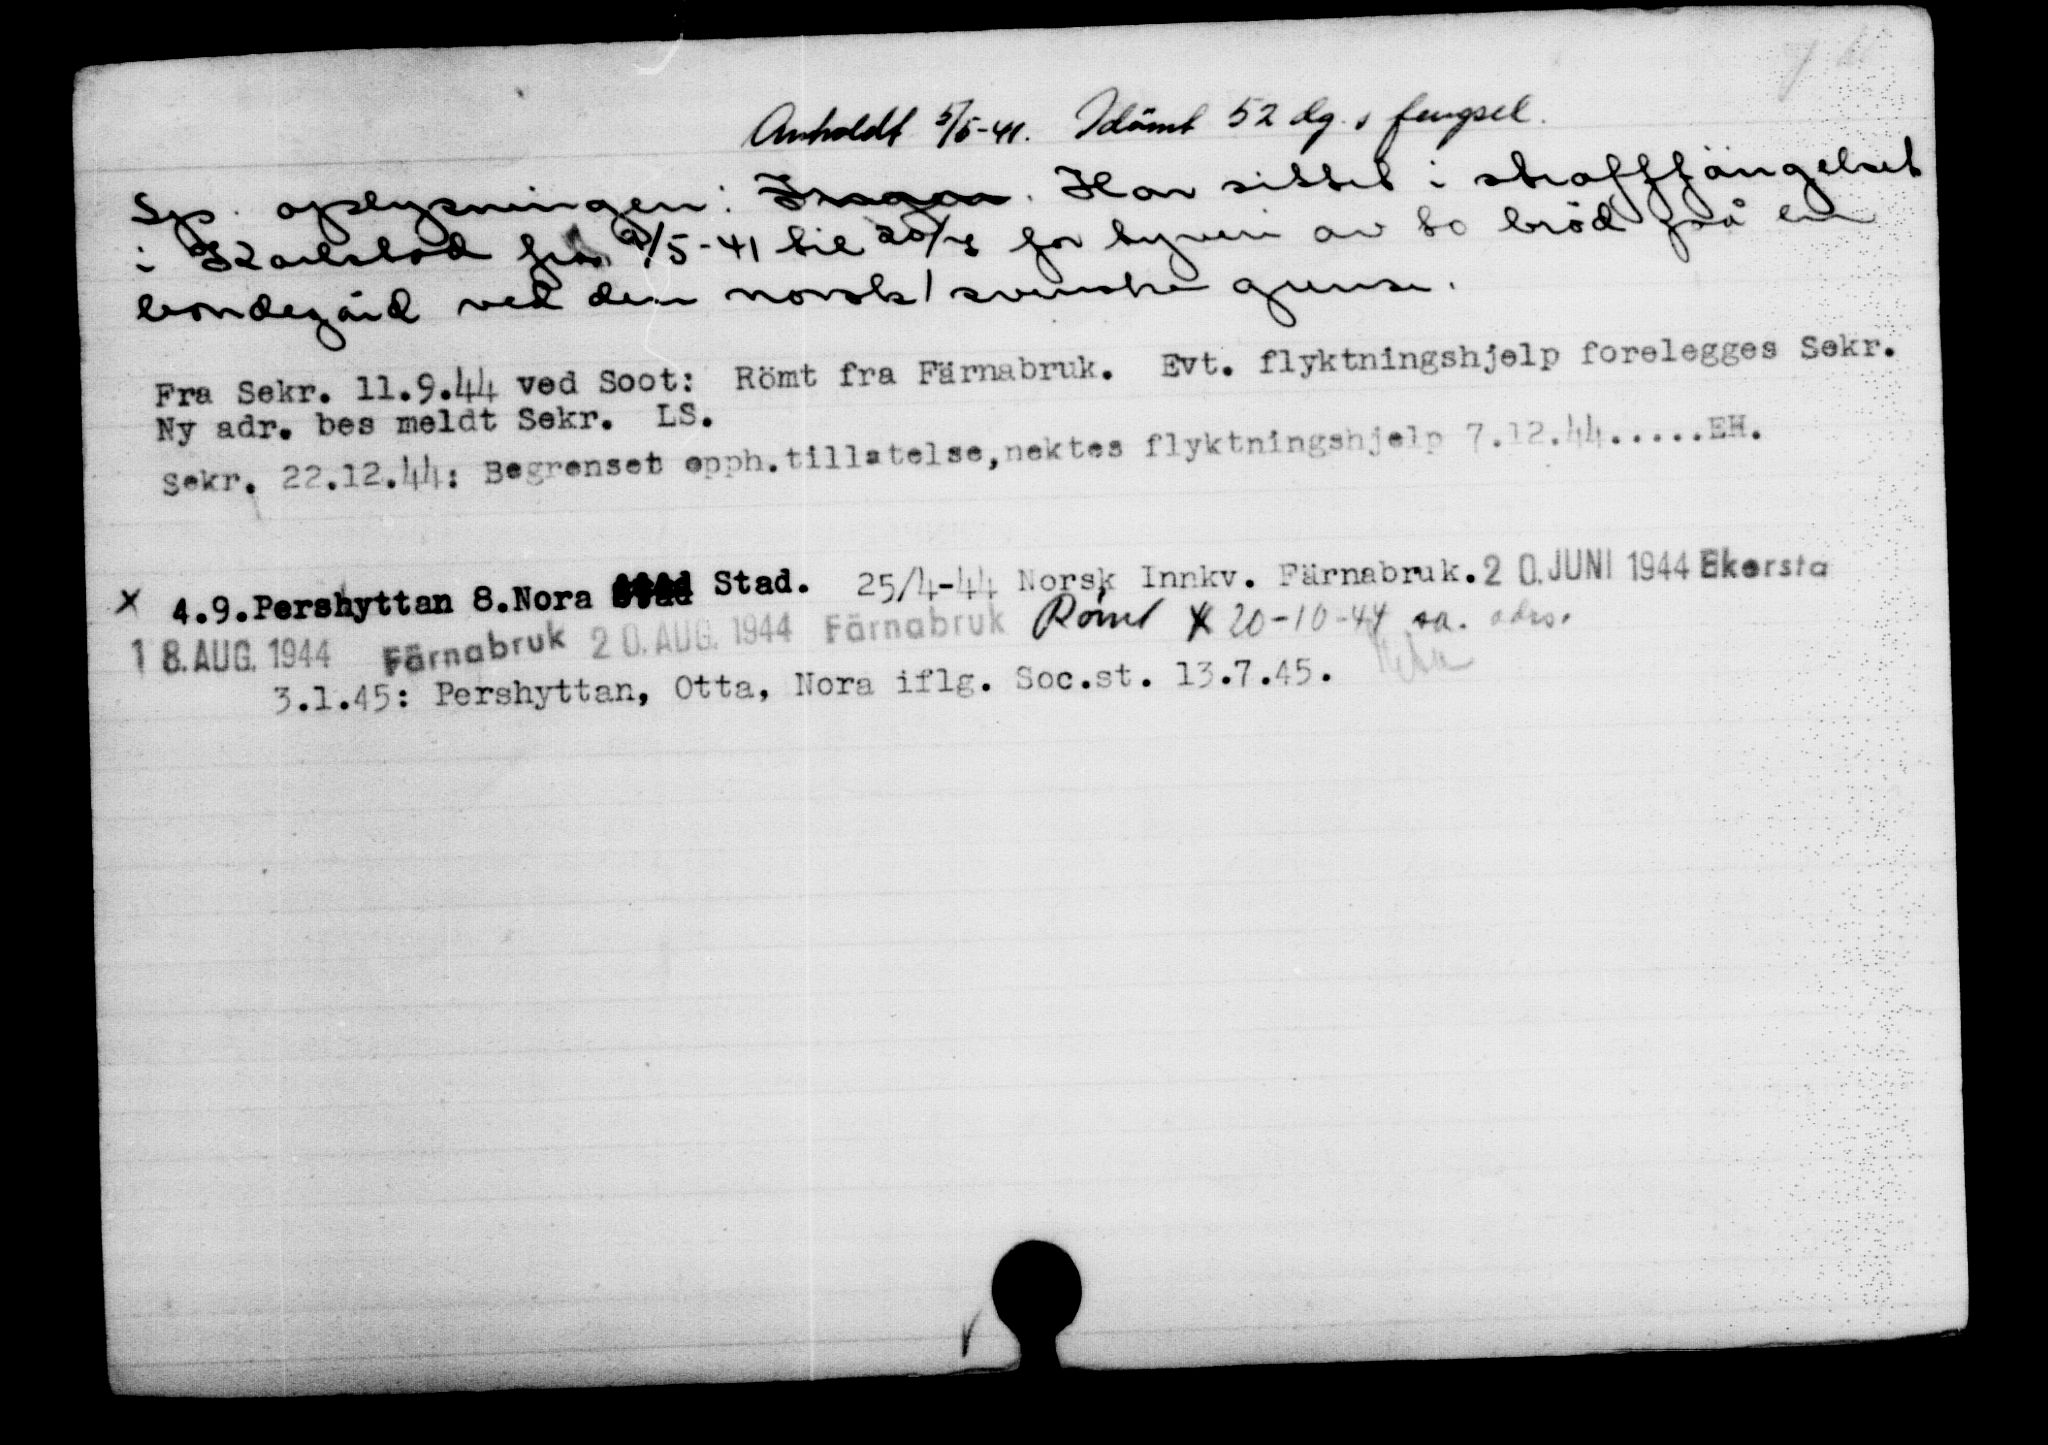 Anholdt 5/5-41. Idömt 52 dg.s fengsel.
Sp. oplysningen: Ingen. Har sittet i strafffängelset
i Karlstad fra 9/5-41 til 20/8 for tyveri av to bröd på en
bondegård ved den norsk/svenske grense.
Fra Sekr. 11.9.44 ved Soot: Römt fra Färnabruk. Evt. flyktningshjelp forelegges Sekr.
Ny adr. bes meldt Sekr. LS.
Sekr. 22.12.44: Begrenset opph.tillatelse,nektes flyktningshjelp 7.12.44.....EH.
x 4.9.Pershyttan 8.Nora Stad Stad. 25/4-44 Norsk Innkv. Färnabruk. 20. JUNI 1944 Ekersta
18. AUG. 1944 Färnabruk 20. AUG. 1944 Färnabruk Römt x 20-10-44 sa. adrs.
3.1.45: Pershyttan, Otta, Nora iflg. Soc.st. 13.7.45.